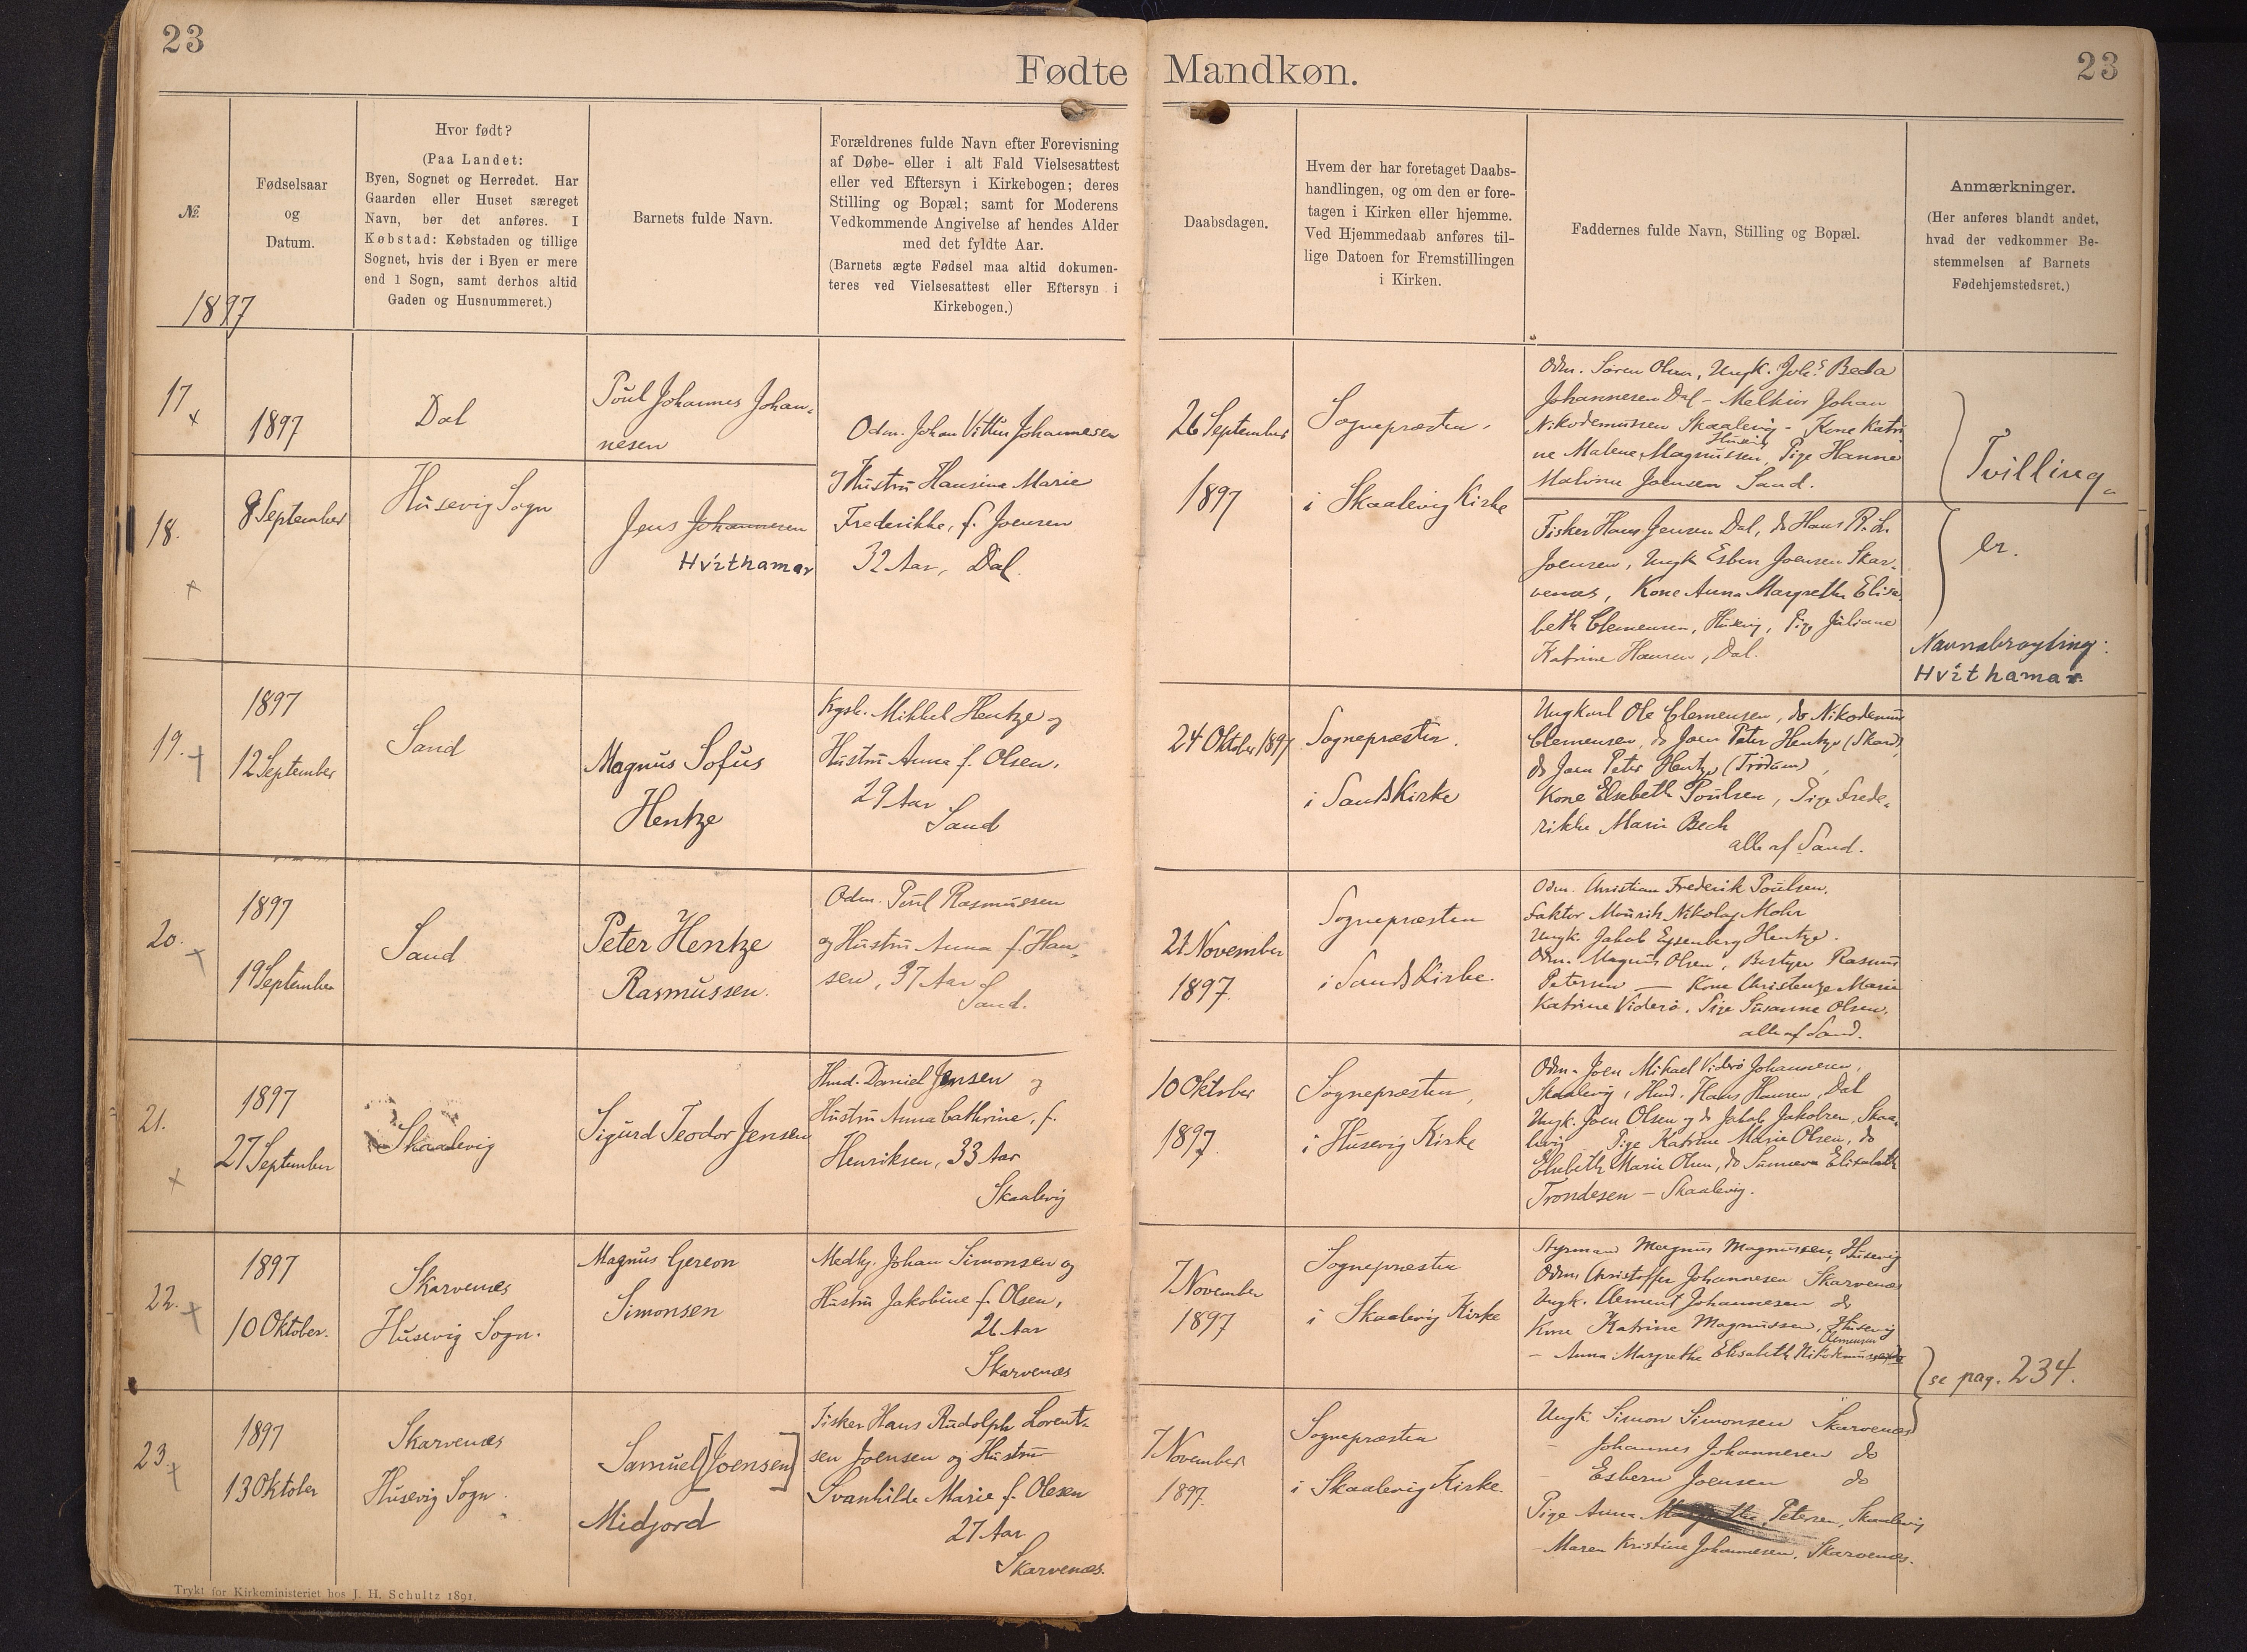 23
Fødte
Mandkøn.
23
№
Fødselsaar
og
Datum.
Hvor født?
(Paa Landet:
Byen, Sognet og Herredet. Har
Gaarden eller Huset særeget
Navn, bør det anføres. I
Købstad: Købstaden og tillige
Sognet, hvis der i Byen er mere
end 1 Sogn, samt derhos altid
Gaden og Husnummeret.)
Barnets fulde Navn.
Forældrenes fulde Navn efter Forevisning
af Døbe- eller i alt Fald Vielsesattest
eller ved Eftersyn i Kirkebogen; deres
Stilling og Bopæl; samt for Moderens
Vedkommende Angivelse af hendes Alder
med det fyldte Aar.
(Barnets ægte Fødsel maa altid dokumen-
teres ved Vielsesattest eller Eftersyn i
Kirkebogen.)
Daabsdagen.
Hvem der har foretaget Daabs-
handlingen, og om den er fore-
tagen i Kirken eller hjemme.
Ved Hjemmedaab anføres til-
lige Datoen for Fremstillingen
i Kirken.
Faddernes fulde Navn, Stilling og Bopæl.
Anmærkninger.
(Her anføres blandt andet,
hvad der vedkommer Be-
stemmelsen af Barnets
Fødehjemstedsret.)
1897
17
1897
Dal
Poul Johannes Johan-
nesen
18.
8 September
Husevig Sogn
Jens Johannesen
Hvíthamar
Odm. Johan Vittus Johannesen
og Hustru Hansina Marie
Frederikke, f. Joensen
32 Aar, Dal.
26 September
1897
Sognepræsten,
i Skaalevig Kirke
Odm. Søren Olsen, Ungk. Johs Beda
Johannesen Dal - Melkior Johan
Nikodemussen Skaalevig - Kone Katri
ne Malene Magnussen Husevig, Pige Hanne
Malvine Joensen Sand.
Fisker Hans Jensen Dal, do Hans R. L.
Joensen, Ungk Esbern Joensen Skar-
venæs, Kone Anna Margrethe Elisa-
beth Clemensen, Husevig, Pige Juliane
Katrine Hansen, Dal.
Tvilling-
er.
Navnabroyting:
Hvíthamar
19.
1897
12 September
Sand
Magnus Sofus
Hentze
Kgsb. Mikkel Hentze og
Hustru Anna f. Olsen,
29 Aar
Sand
24 Oktober 1897
Sognepræsten.
i Sands Kirke
Ungkarl Ole Clemensen, do Nikodemus
Clemensen, do Joen Peter Hentze (Skard)
do Joen Peter Hentze (Trödum),
Kone Elsebeth Poulsen, Pige Frede-
rikke Marie Beck
alle af Sand.
20.
1897
19 September
Sand
Peter Hentze
Rasmussen.
Odm. Poul Rasmussen
og Hustru Anna f. Han-
sen, 37 Aar
Sand.
21 November
1897
Sognepræsten
i Sands Kirke.
Odm. Christian Frederik Poulsen,
Faktor Mourits Nikolaj Mohr
Ungk. Jakob Eysenberg Hentze.
Odm. Magnus Olsen, Bestyer Rasmus
Petersen — Kone Christenze Marie
Katrine Viderø, Pige Susanne Olsen,
alle af Sand.
21.
1897
27 September
Skaalevig
Sigurd Teodor Jensen
Hmd. Daniel Jensen og
Hustru Anna Cathrine, f.
Henriksen, 33 Aar
Skaalevig
10 Oktober
1897
Sognepræsten,
i Husevig Kirke
Odm. Joen Mikael Viderø Johannesen,
Skaalevig, Hmd. Hans Hansen, Dal
Ungk. Joen Olsen og do Jakob Jakobsen, Skaa-
levig - Pige Katrine Marie Olsen, do
Elsebeth Marie Olsen, do Sunneva Elisabeth
Trondesen - Skaalevig.
22.
1897
10 Oktober.
Skarvenæs
Husevig Sogn.
Magnus Gereon
Simonsen
Medhj. Johan Simonsen og
Hustru Jakobine f. Olsen,
26 Aar
Skarvenæs
7 November
1897
Sognepræsten
i Skaalevig Kirke
Styrmand Magnus Magnussen, Husevig
Odm. Christoffer Johannesen Skarvenæs
Ungk. Clement Johannesen do
Kone Katrine Magnussen, Husevig
- Anna Margrethe Elisabeth Nikodemussen Clemensen do
se pag. 234.
23.
1897
13 Oktober
Skarvenæs
Husevig Sogn.
Samuel [Joensen]
Midjord
Fisker Hans Rudolph Lorent-
sen Joensen og Hustru
Svanhilde Marie f. Olesen
27 Aar
Skarvenæs.
7 November
1897.
Sognepræsten
i Skaalevig Kirke.
Ungk. Simon Simonsen Skarvenæs
- Johannes Johannesen do
- Esbern Joensen do
Pige Anna Petersen, Skaalevig
- Maren Kristine Johannesen, Skarvenæs.
Trykt for Kirkeministeriet hos J. H. Schultz 1891.